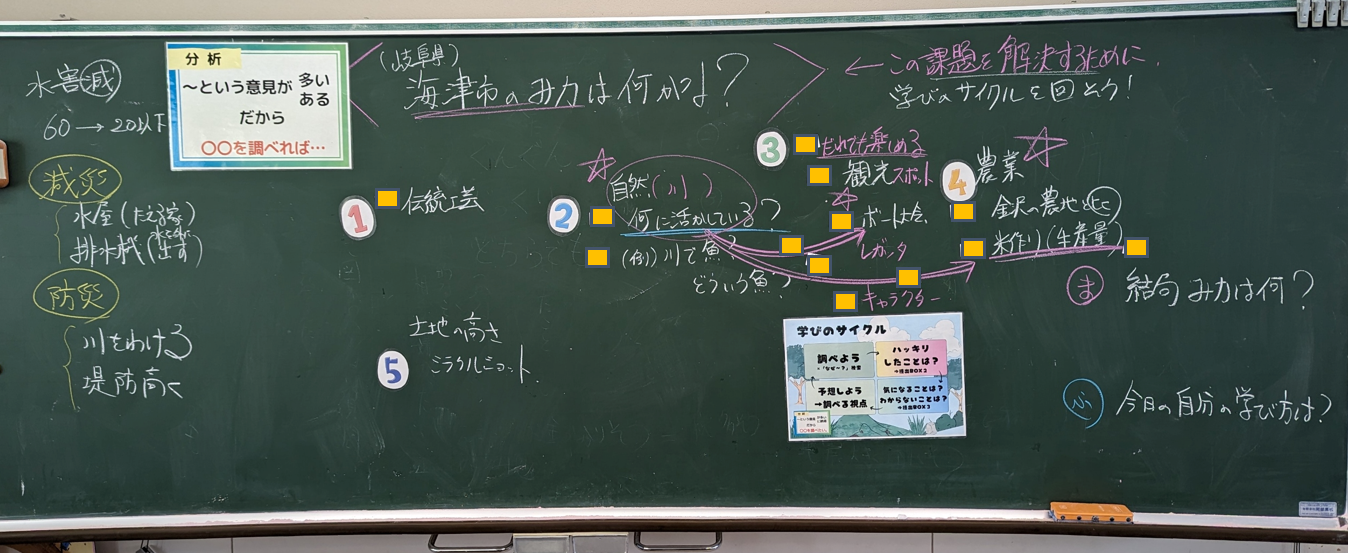 水害減
60→20以下
減災
水屋(たえる家)
排水機(水を外に出す)
防災
川をわける
堤防高く
分析
～という意見が 多い
ある
だから
〇〇を調べれば…
(岐阜県)
海津市のみ力は何かな？
←この課題を解決するために
学びのサイクルを回そう!
1
伝統工芸
2
自然(川)
何に活かしている？
(例)川で魚？
どういう魚？
3
だれでも楽しめる
観光スポット
ボート大会
レガッタ
キャラクター
4
農業
金沢の農地と比
米作り(生産量)
5
土地の高さ
ミラクルショット
学びのサイクル
調べよう
ハッキリ
したことは？
→提出BOX2
予想しよう
→調べる視点
気になることは？
わからないことは？
→提出BOX3
ま 結局み力は何？
ふ 今日の自分の学び方は？